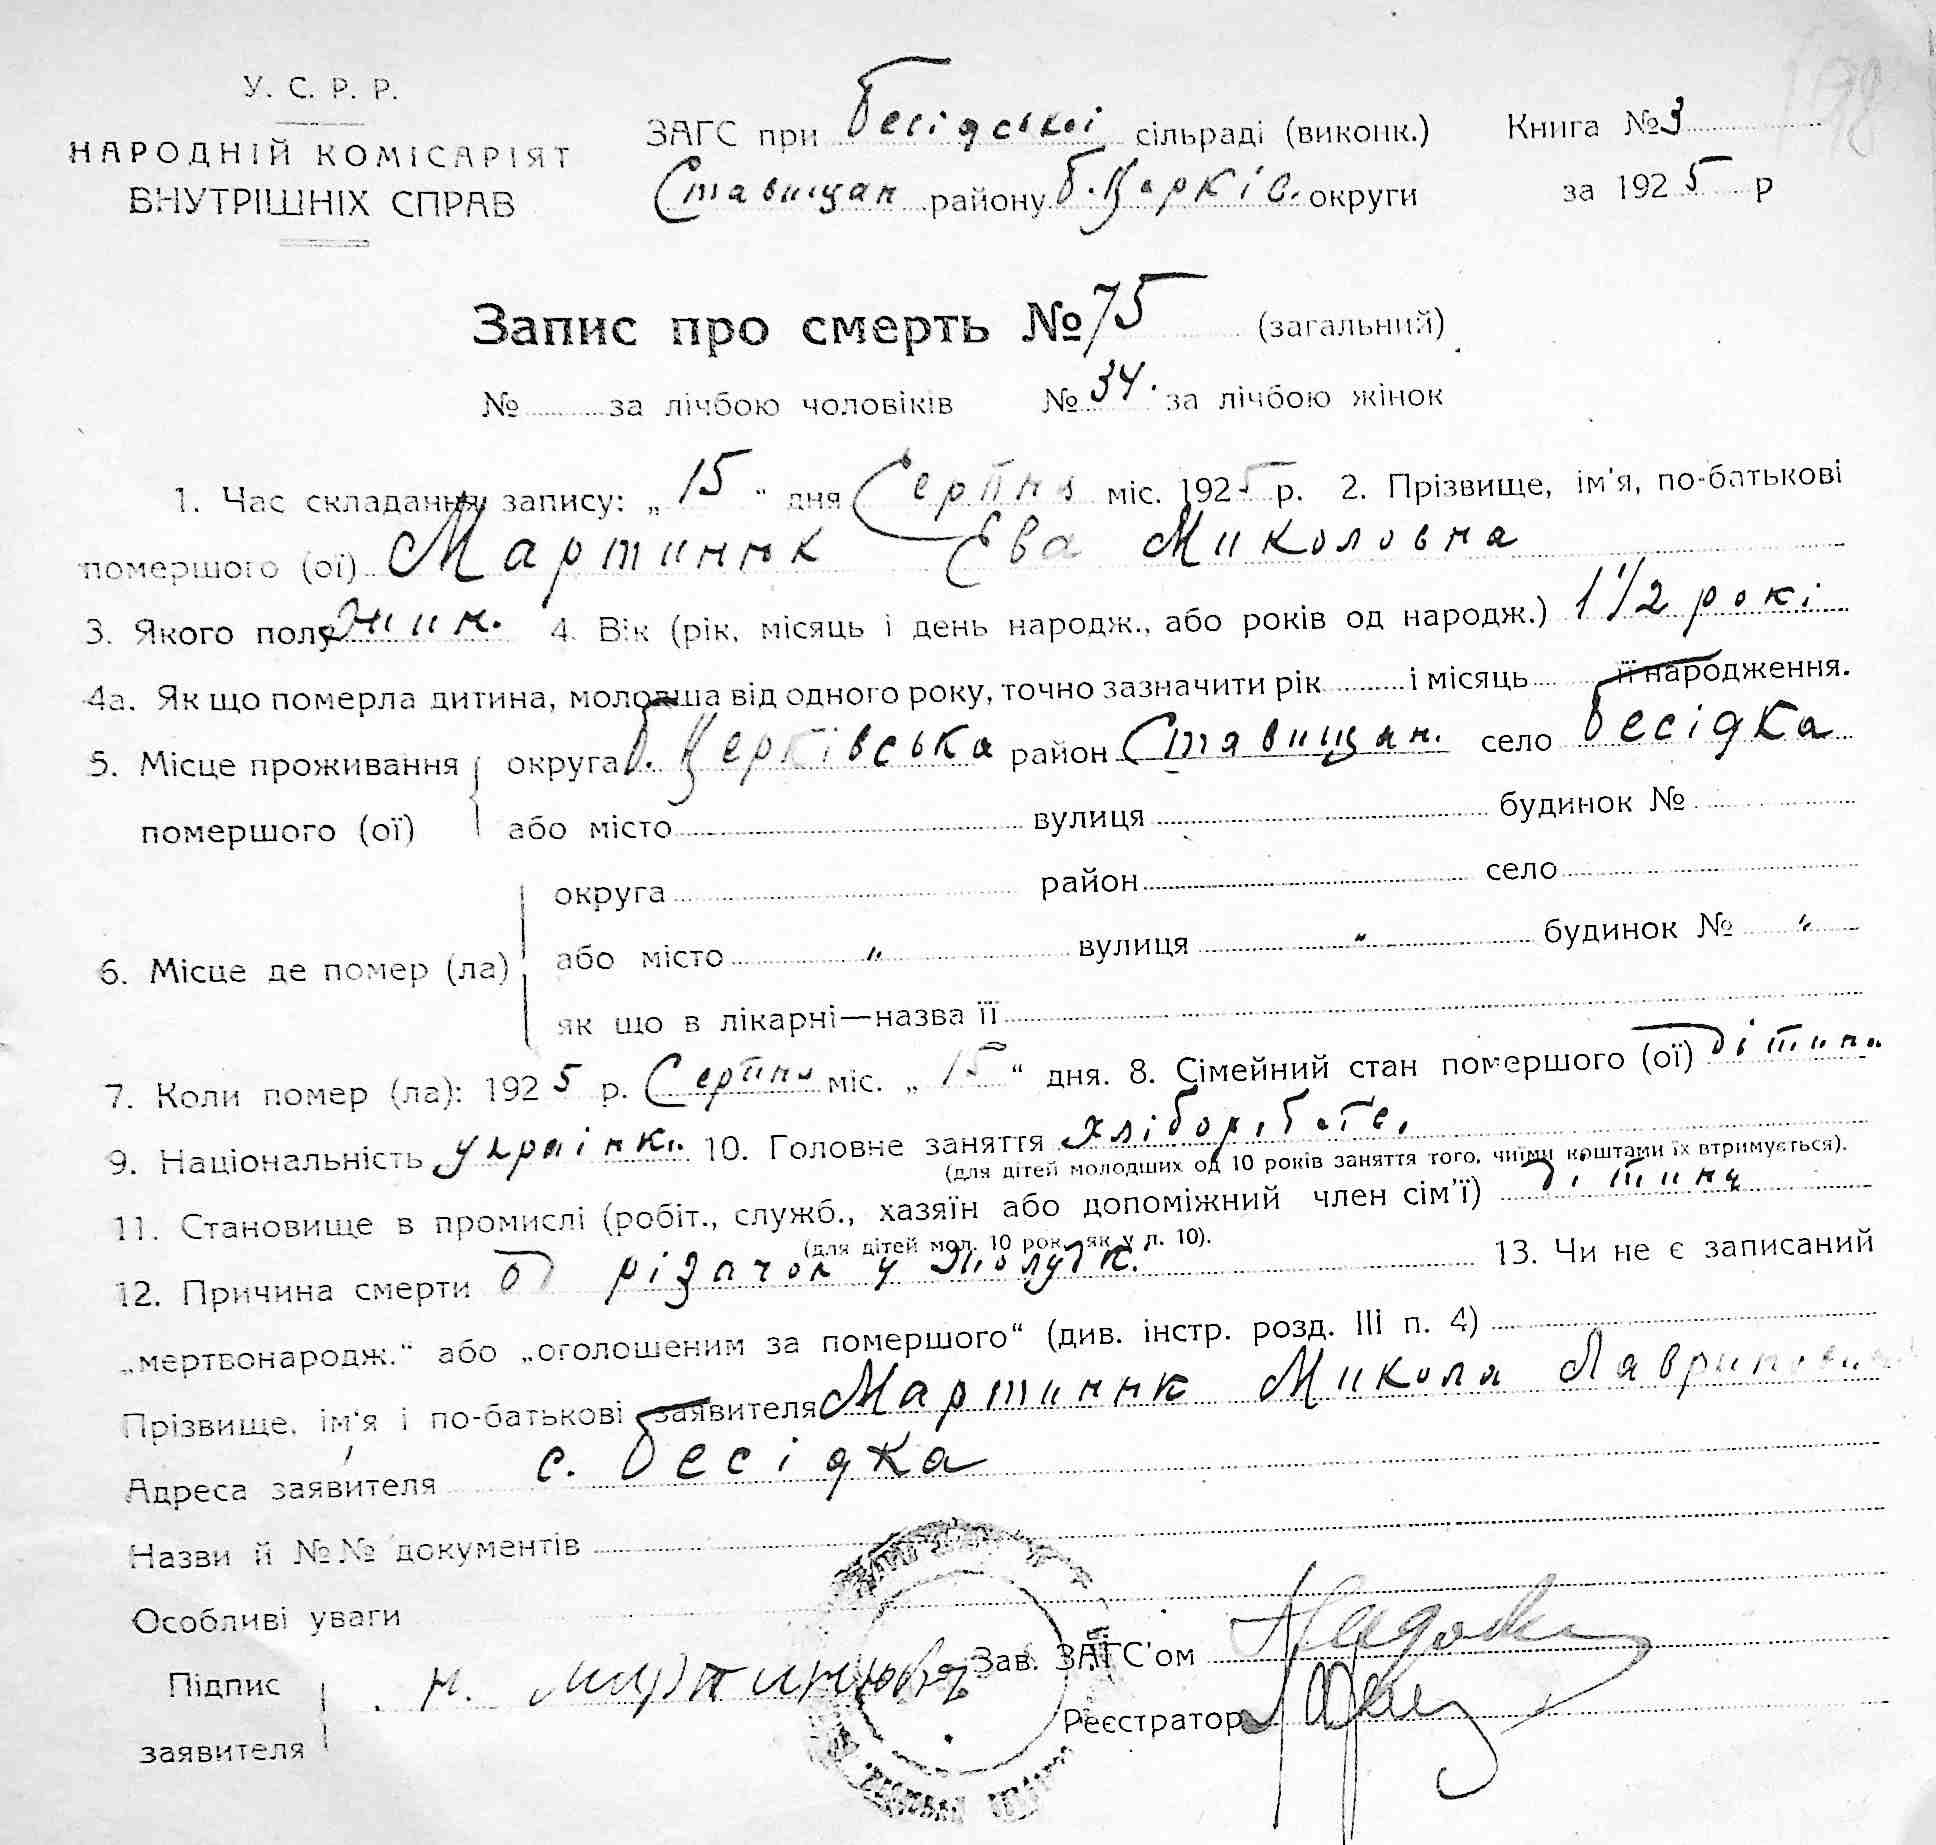 У. С. Р. Р.
НАРОДНІЙ КОМІСАРІЯТ
ВНУТРІШНІХ СПРАВ
ЗАГС при Бесідської сільраді (виконк.) Книга № 3
Ставищан району Б. Церків. округи за 1925 р
Запис про смерть № 75 (загальний)
№ за лічбою чоловіків № 34. за лічбою жінок
1. Час складання запису: „15“ дня Серпня міс. 1925 р. 2. Прізвище, ім'я, по-батькові
помершого (ої) Мартинюк Ева Миколовна
3. Якого полу жин. 4. Вік (рік, місяць і день народж., або років од народж.) 1 1/2 рокі
4а. Як що померла дитина, молодша від одного року, точно зазначити рік і місяць її народження.
5. Місце проживання округа Б. Церківська район Ставищан. село Бесідка
помершого (ої) або місто вулиця будинок №
округа район село
6. Місце де помер (ла) або місто „ вулиця „ будинок № „
як що в лікарні—назва її
7. Коли помер (ла): 1925 р. Серпня міс. „15“ дня. 8. Сімейний стан помершого (ої) дітина
9. Національність украінка 10. Головне заняття хлібор.
(для дітей молодших од 10 років заняття того, чиїми коштами їх втримується).
11. Становище в промислі (робіт., служб., хазяїн або допоміжний член сім'ї) дітина
(для дітей мол. 10 рок. як у п. 10).
12. Причина смерти од різачок у жолудк. 13. Чи не є записаний
„мертвонародж.“ або „оголошеним за помершого“ (див. інстр. розд. III п. 4)
Прізвище, ім'я і по-батькові заявителя Мартинюк Микола Лавринович
Адреса заявителя с. Бесідка
Назви й №№ документів
Особливі уваги
Підпис
заявителя
Зав. ЗАГС'ом
Реєстратор